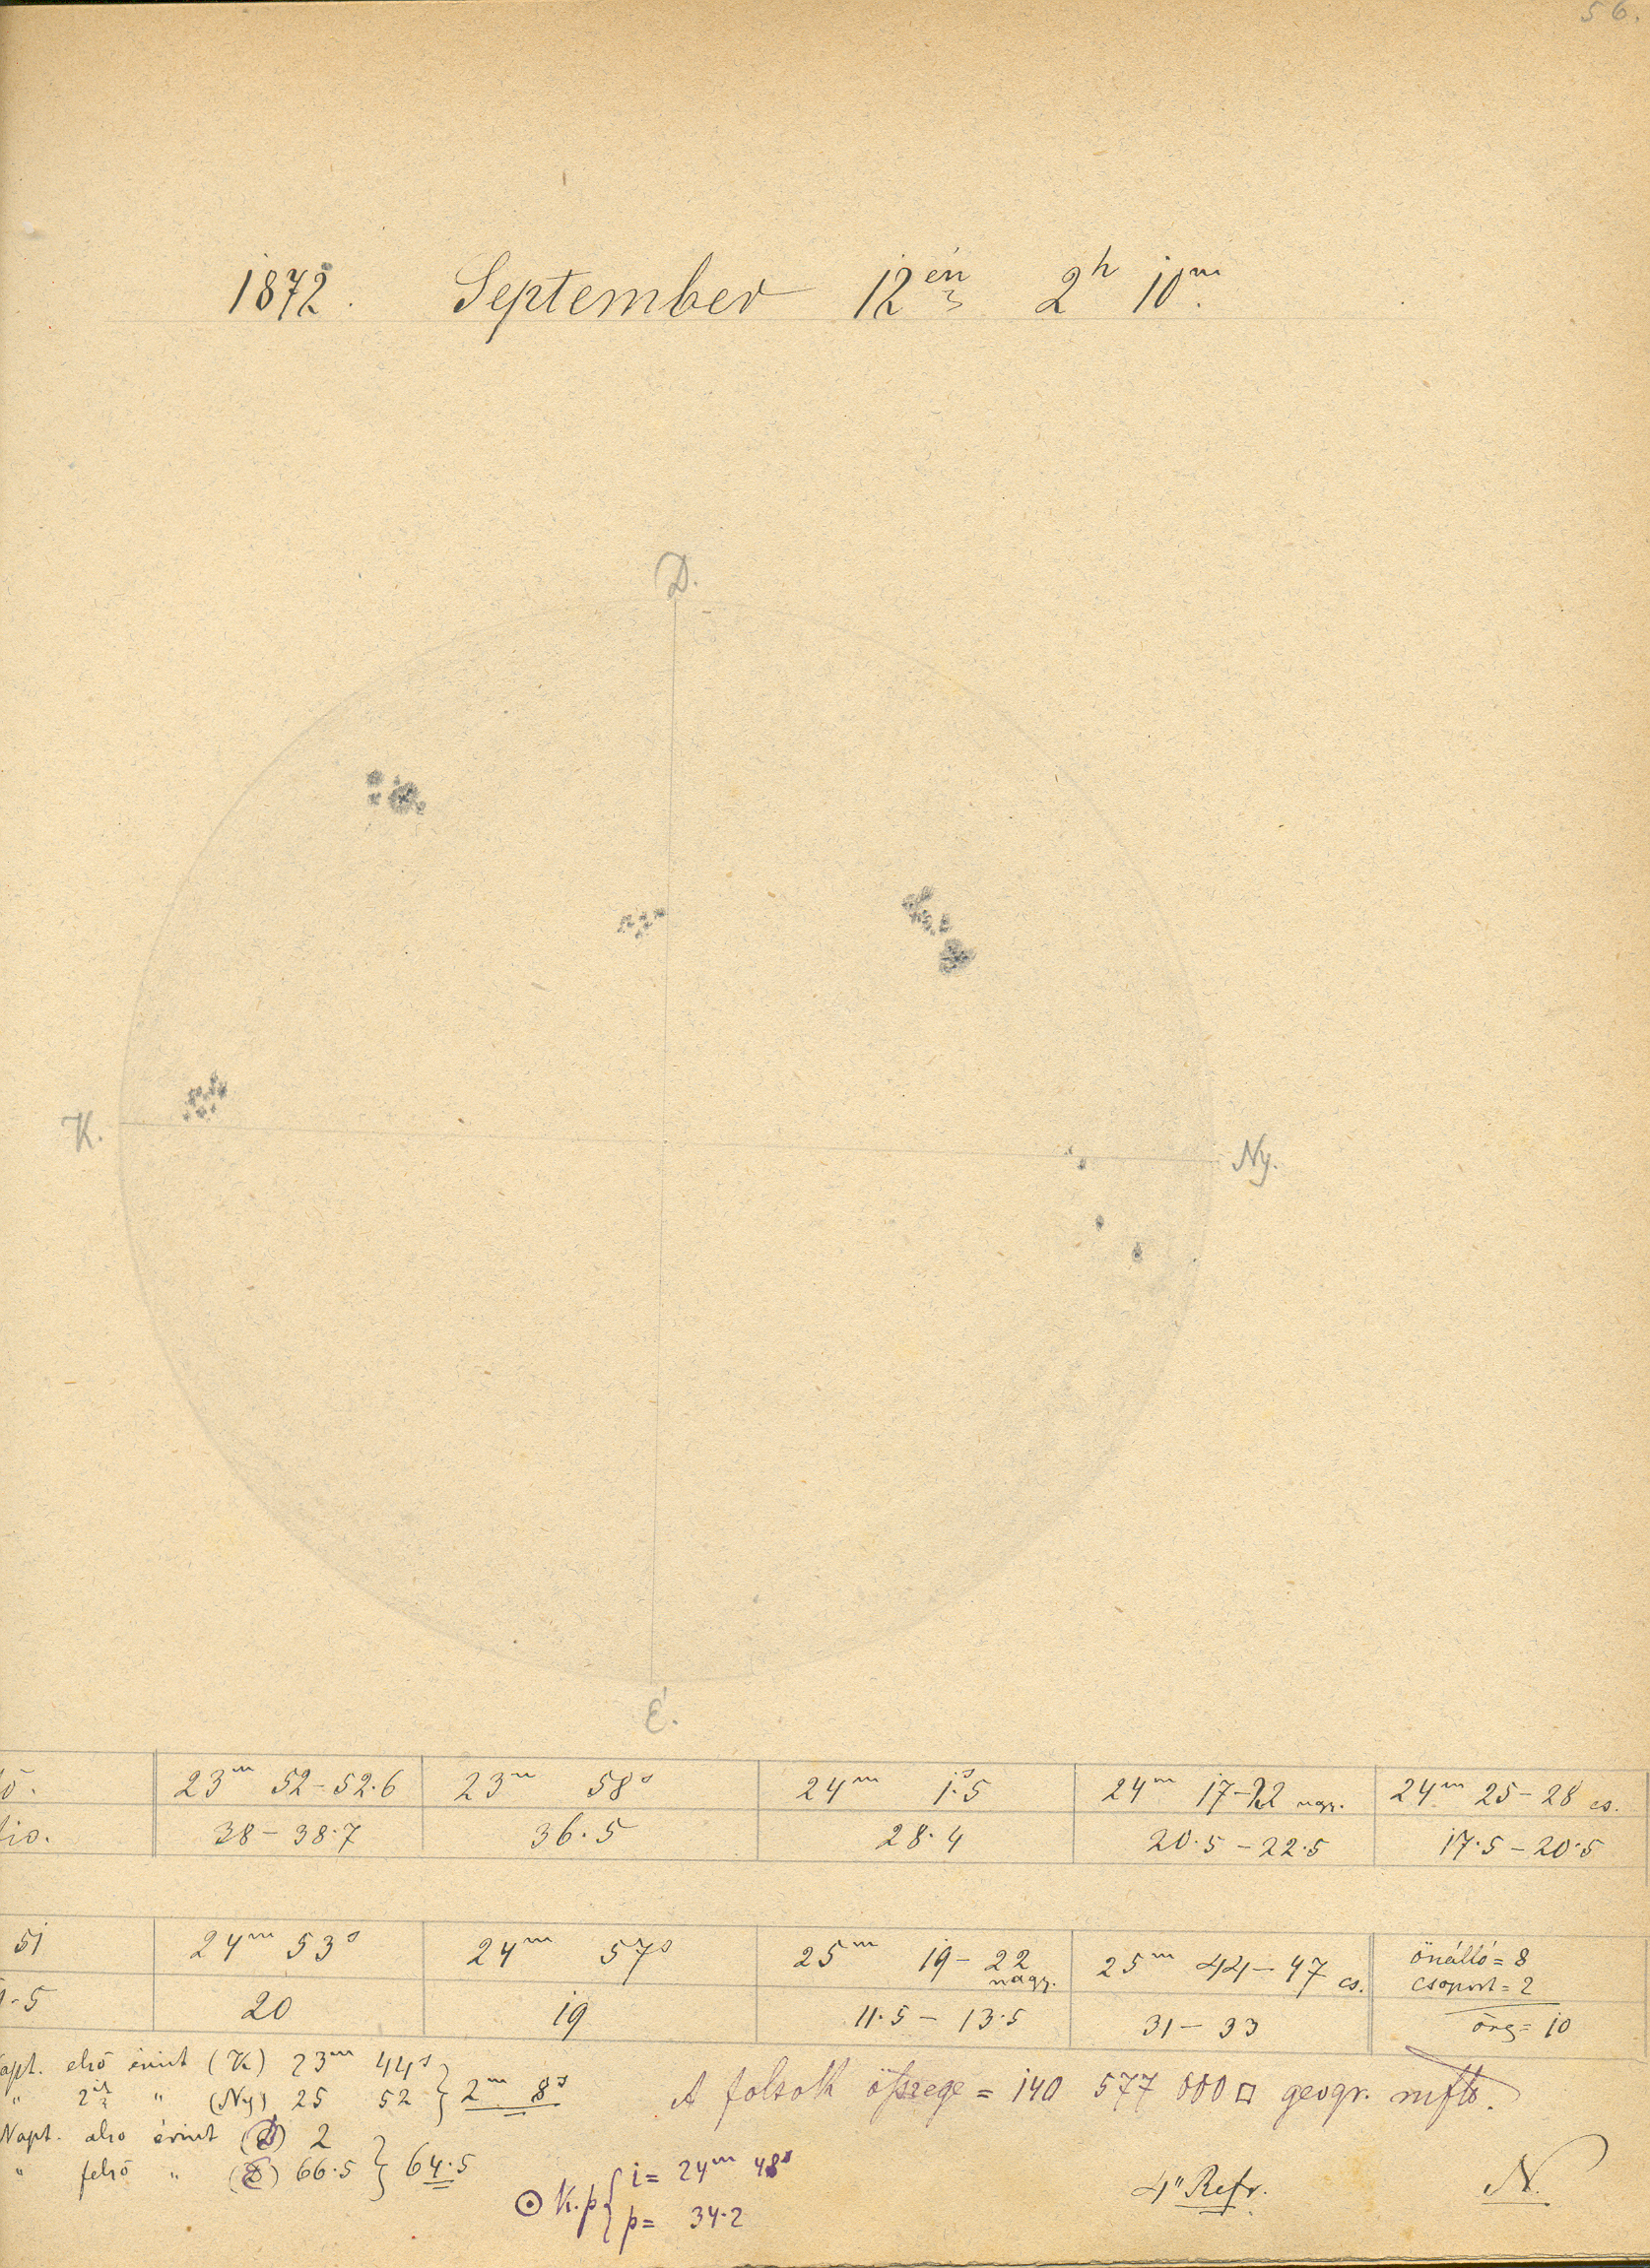 56.
1872. September 12én 2h 10m.
D.
K.
Ny.
É.
ő. 23m 52-52.6 23m 58s 24m 1s.5 24m 17-22 nagy. 24m 25-28 cs.
38-38.7 36.5 28.4 20.5-22.5 17.5-20.5
51 24m 53s 24m 57s 25m 19-22 nagy. 25m 44-47 cs. önálló=8
csoport=2
.5 20 19 11.5-13.5 31-33 örg=10
apt. első érint (K) 23m 44s
" 2ik " (Ny) 25 52 } 2m 8s
A foltok összege = 140 577 000 □ geogr. mfld.
Napt. alsó érint (D) 2
" felső " (É) 66.5 } 64.5
⊙ K.p { i= 24m 48s
p= 34.2
4" Refr. N.